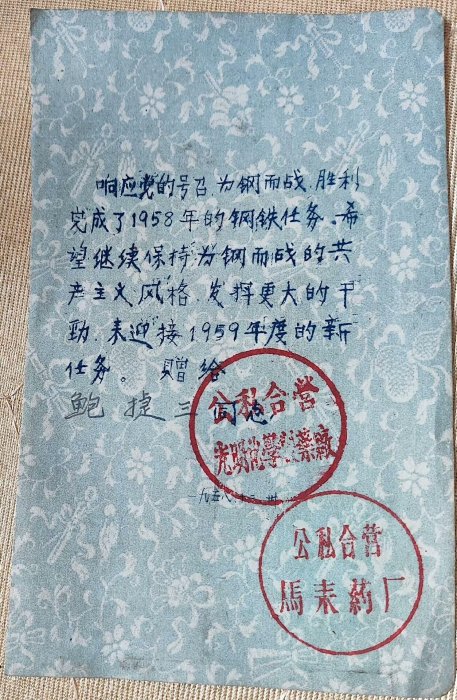 响应党的号召、为钢而战、胜利
完成了1958年的钢铁任务。希
望继续保持为钢而战的共
产主义风格、发挥更大的干
劲、来迎接1959年度的新
任务。 赠给
鲍捷三同志
公私合营
光明化學製藥廠
一九五八.十二.卅一
公私合营
馬耒葯厂